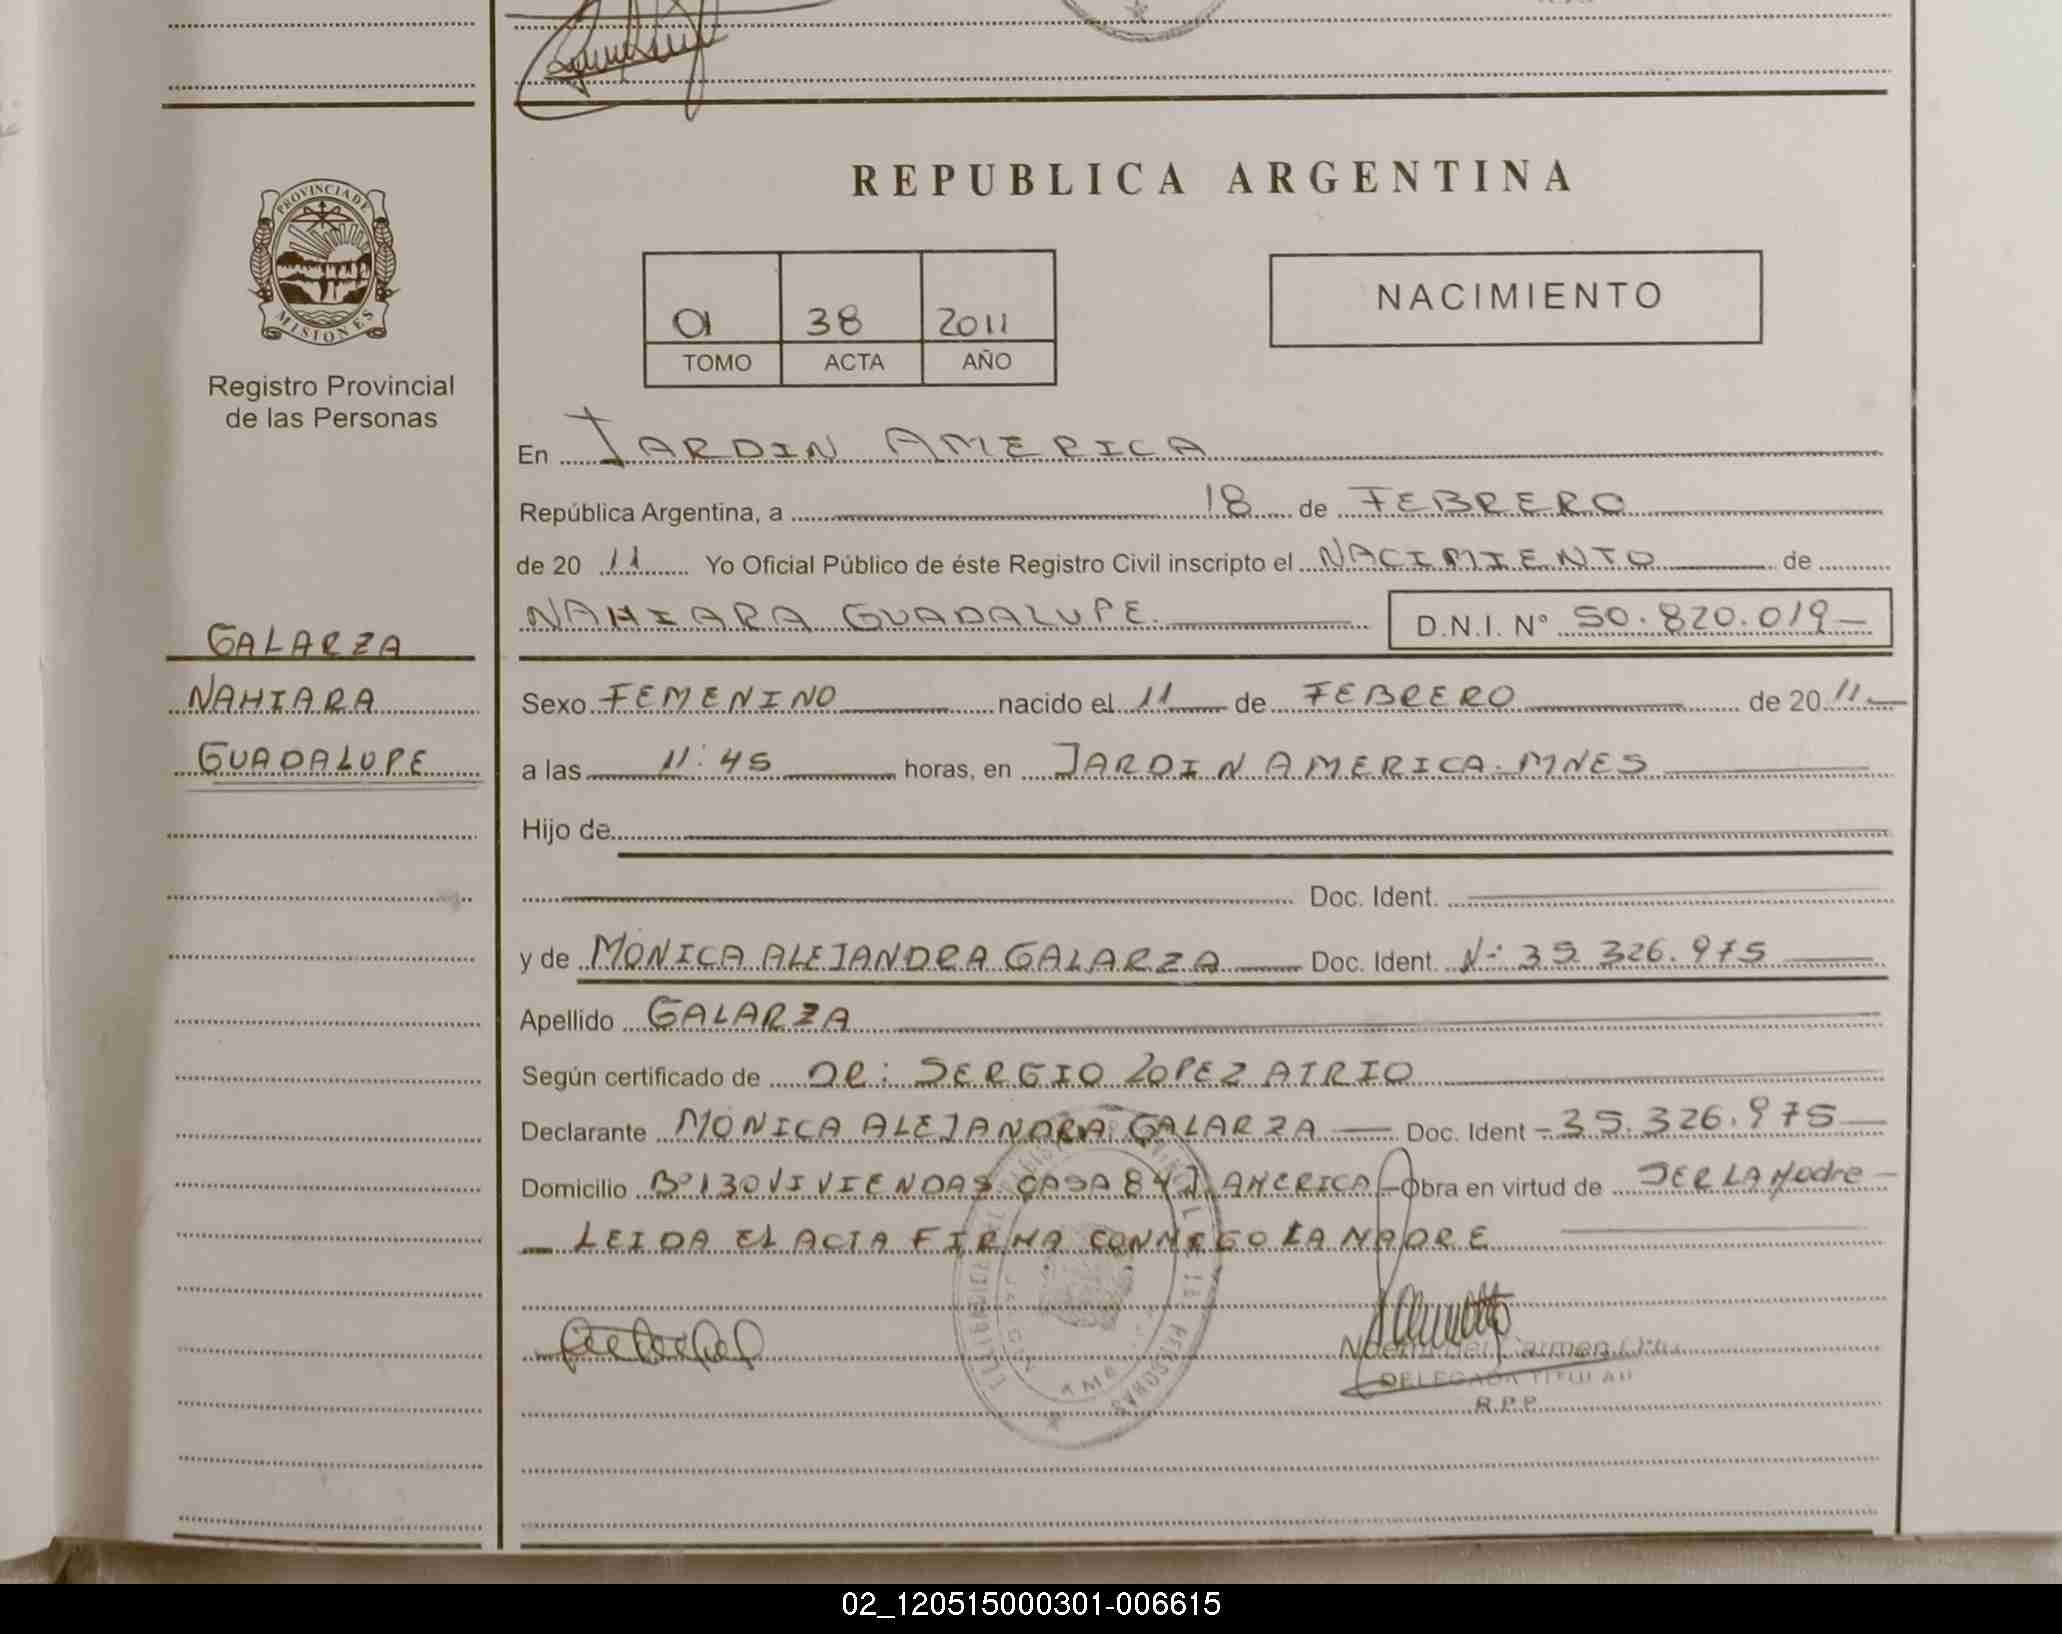 REPUBLICA ARGENTINA
PROVINCIA DE
MISIONES
Registro Provincial
de las Personas
01 38 2011
TOMO ACTA AÑO
NACIMIENTO
En JARDIN AMERICA
República Argentina, a 18 de FEBRERO
de 20 11 Yo Oficial Público de éste Registro Civil inscripto el NACIMIENTO de
NAHIARA GUADALUPE. D.N.I. Nº 50.820.019-
GALARZA
NAHIARA
GUADALUPE
Sexo FEMENINO nacido el 11 de FEBRERO de 20 11
a las 11:45 horas, en JARDIN AMERICA. MNES
Hijo de
Doc. Ident.
y de MONICA ALEJANDRA GALARZA Doc. Ident. Nº 35.326.975
Apellido GALARZA
Según certificado de DR: SERGIO LOPEZ AIRIO
Declarante MONICA ALEJANDRA GALARZA Doc. Ident - 35.326.975
Domicilio Bº 130 VIVIENDAS CASA 84 J. AMERICA - Obra en virtud de SER LA Madre
LEIDA EL ACTA FIRMA CONMIGO LA MADRE
DELEGADA TITULAR
R.P.P.
02_120515000301-006615